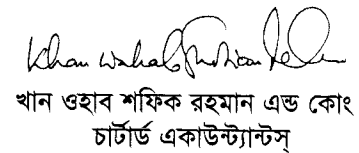 Khan Wahab Shafique Rahman
খান ওহাব শফিক রহমান এন্ড কোং
চার্টার্ড একাউন্ট্যান্টস্